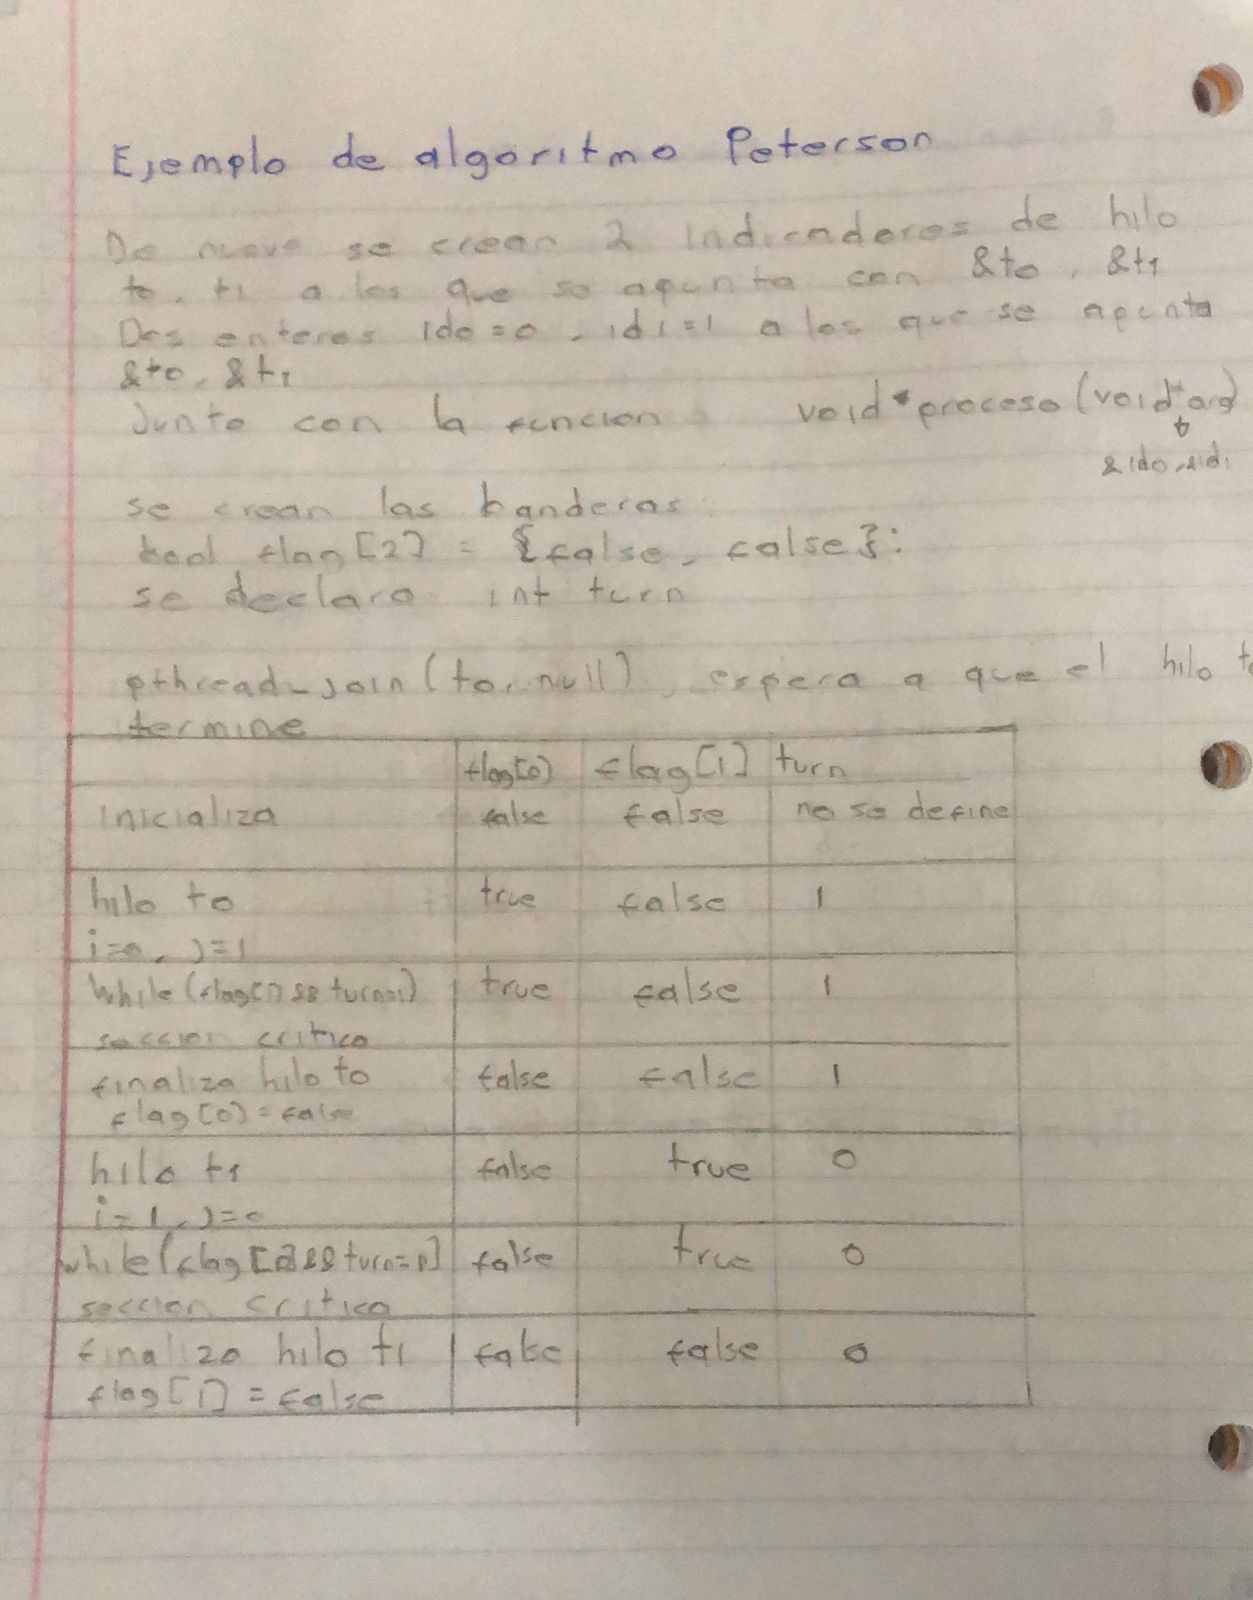 Ejemplo de algoritmo Peterson
De nuevo se crean 2 indicadores de hilo
to, t1 a los que se apunta con &to, &t1
Dos enteros ido=0, id1=1 a los que se apunta
&to, &t1
Junto con la funcion void *proceso (void *arg)
&ido, &id1
se crean las banderas
bool flag[2] = {false, false};
se declara int turn
pthread_join(to, null), espera a que el hilo to
termine
flag[0] flag[1] turn
inicializa false false no se define
hilo to true false 1
i=0, j=1
while(flag[1] && turn=1) true false 1
seccion critica
finaliza hilo to false false 1
flag[0] = false
hilo t1 false true 0
i=1, j=0
while(flag[0] && turn=0] false true 0
seccion critica
finaliza hilo t1 false false 0
flag[1] = false